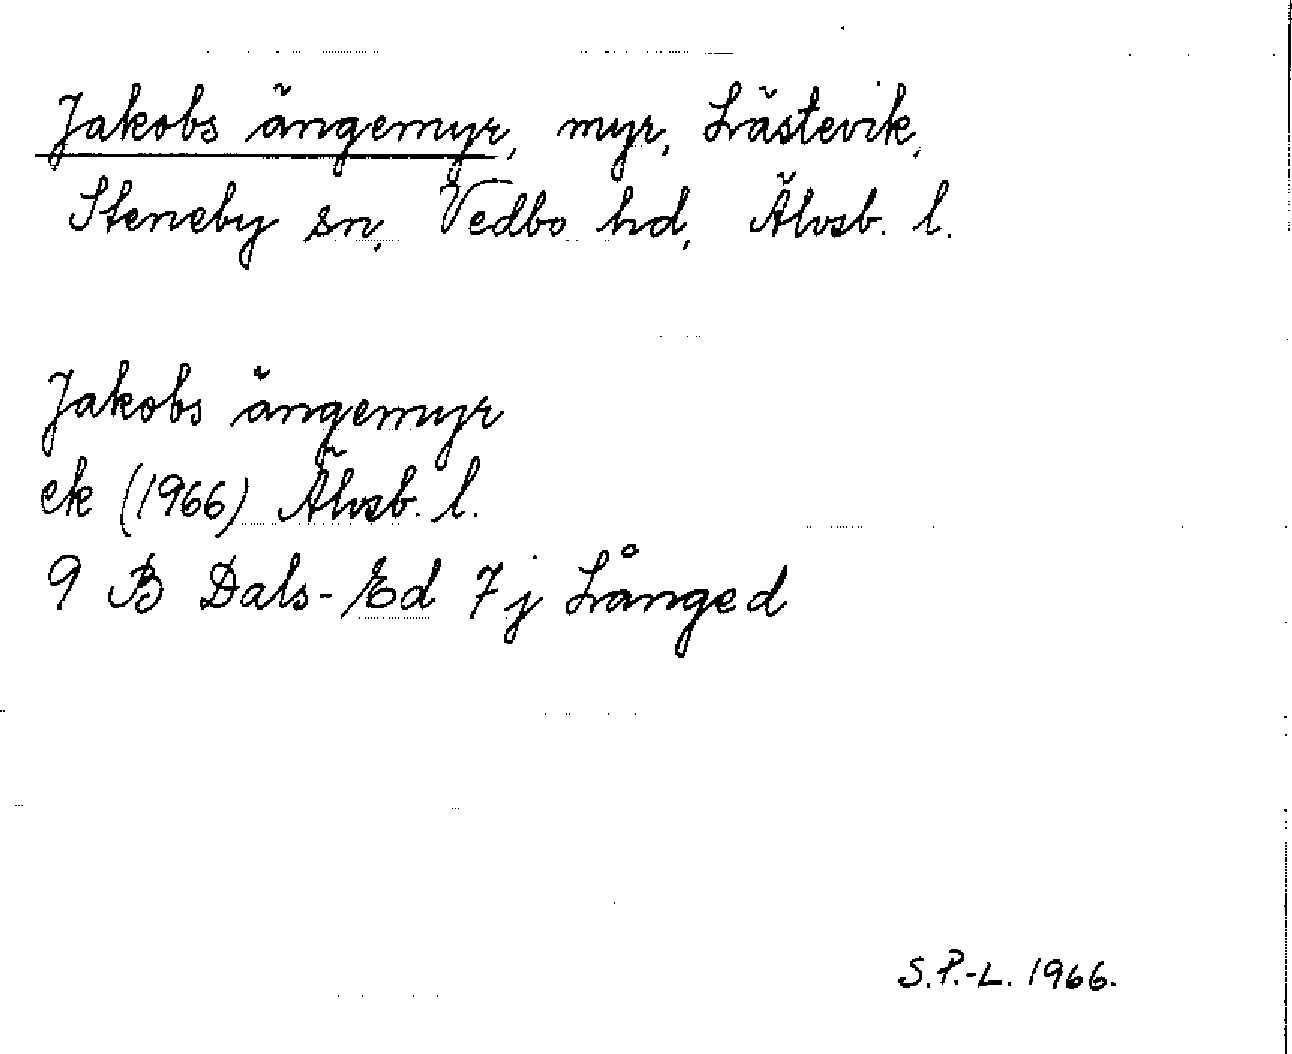 Jakobs ängemyr, myr, Lästevik,
Steneby sn, Vedbo hd, Älvsb. l.
Jakobs ängemyr
ek (1966) Älvsb. l.
9 B Dals-Ed 7 j Långed
S.P.-L. 1966.